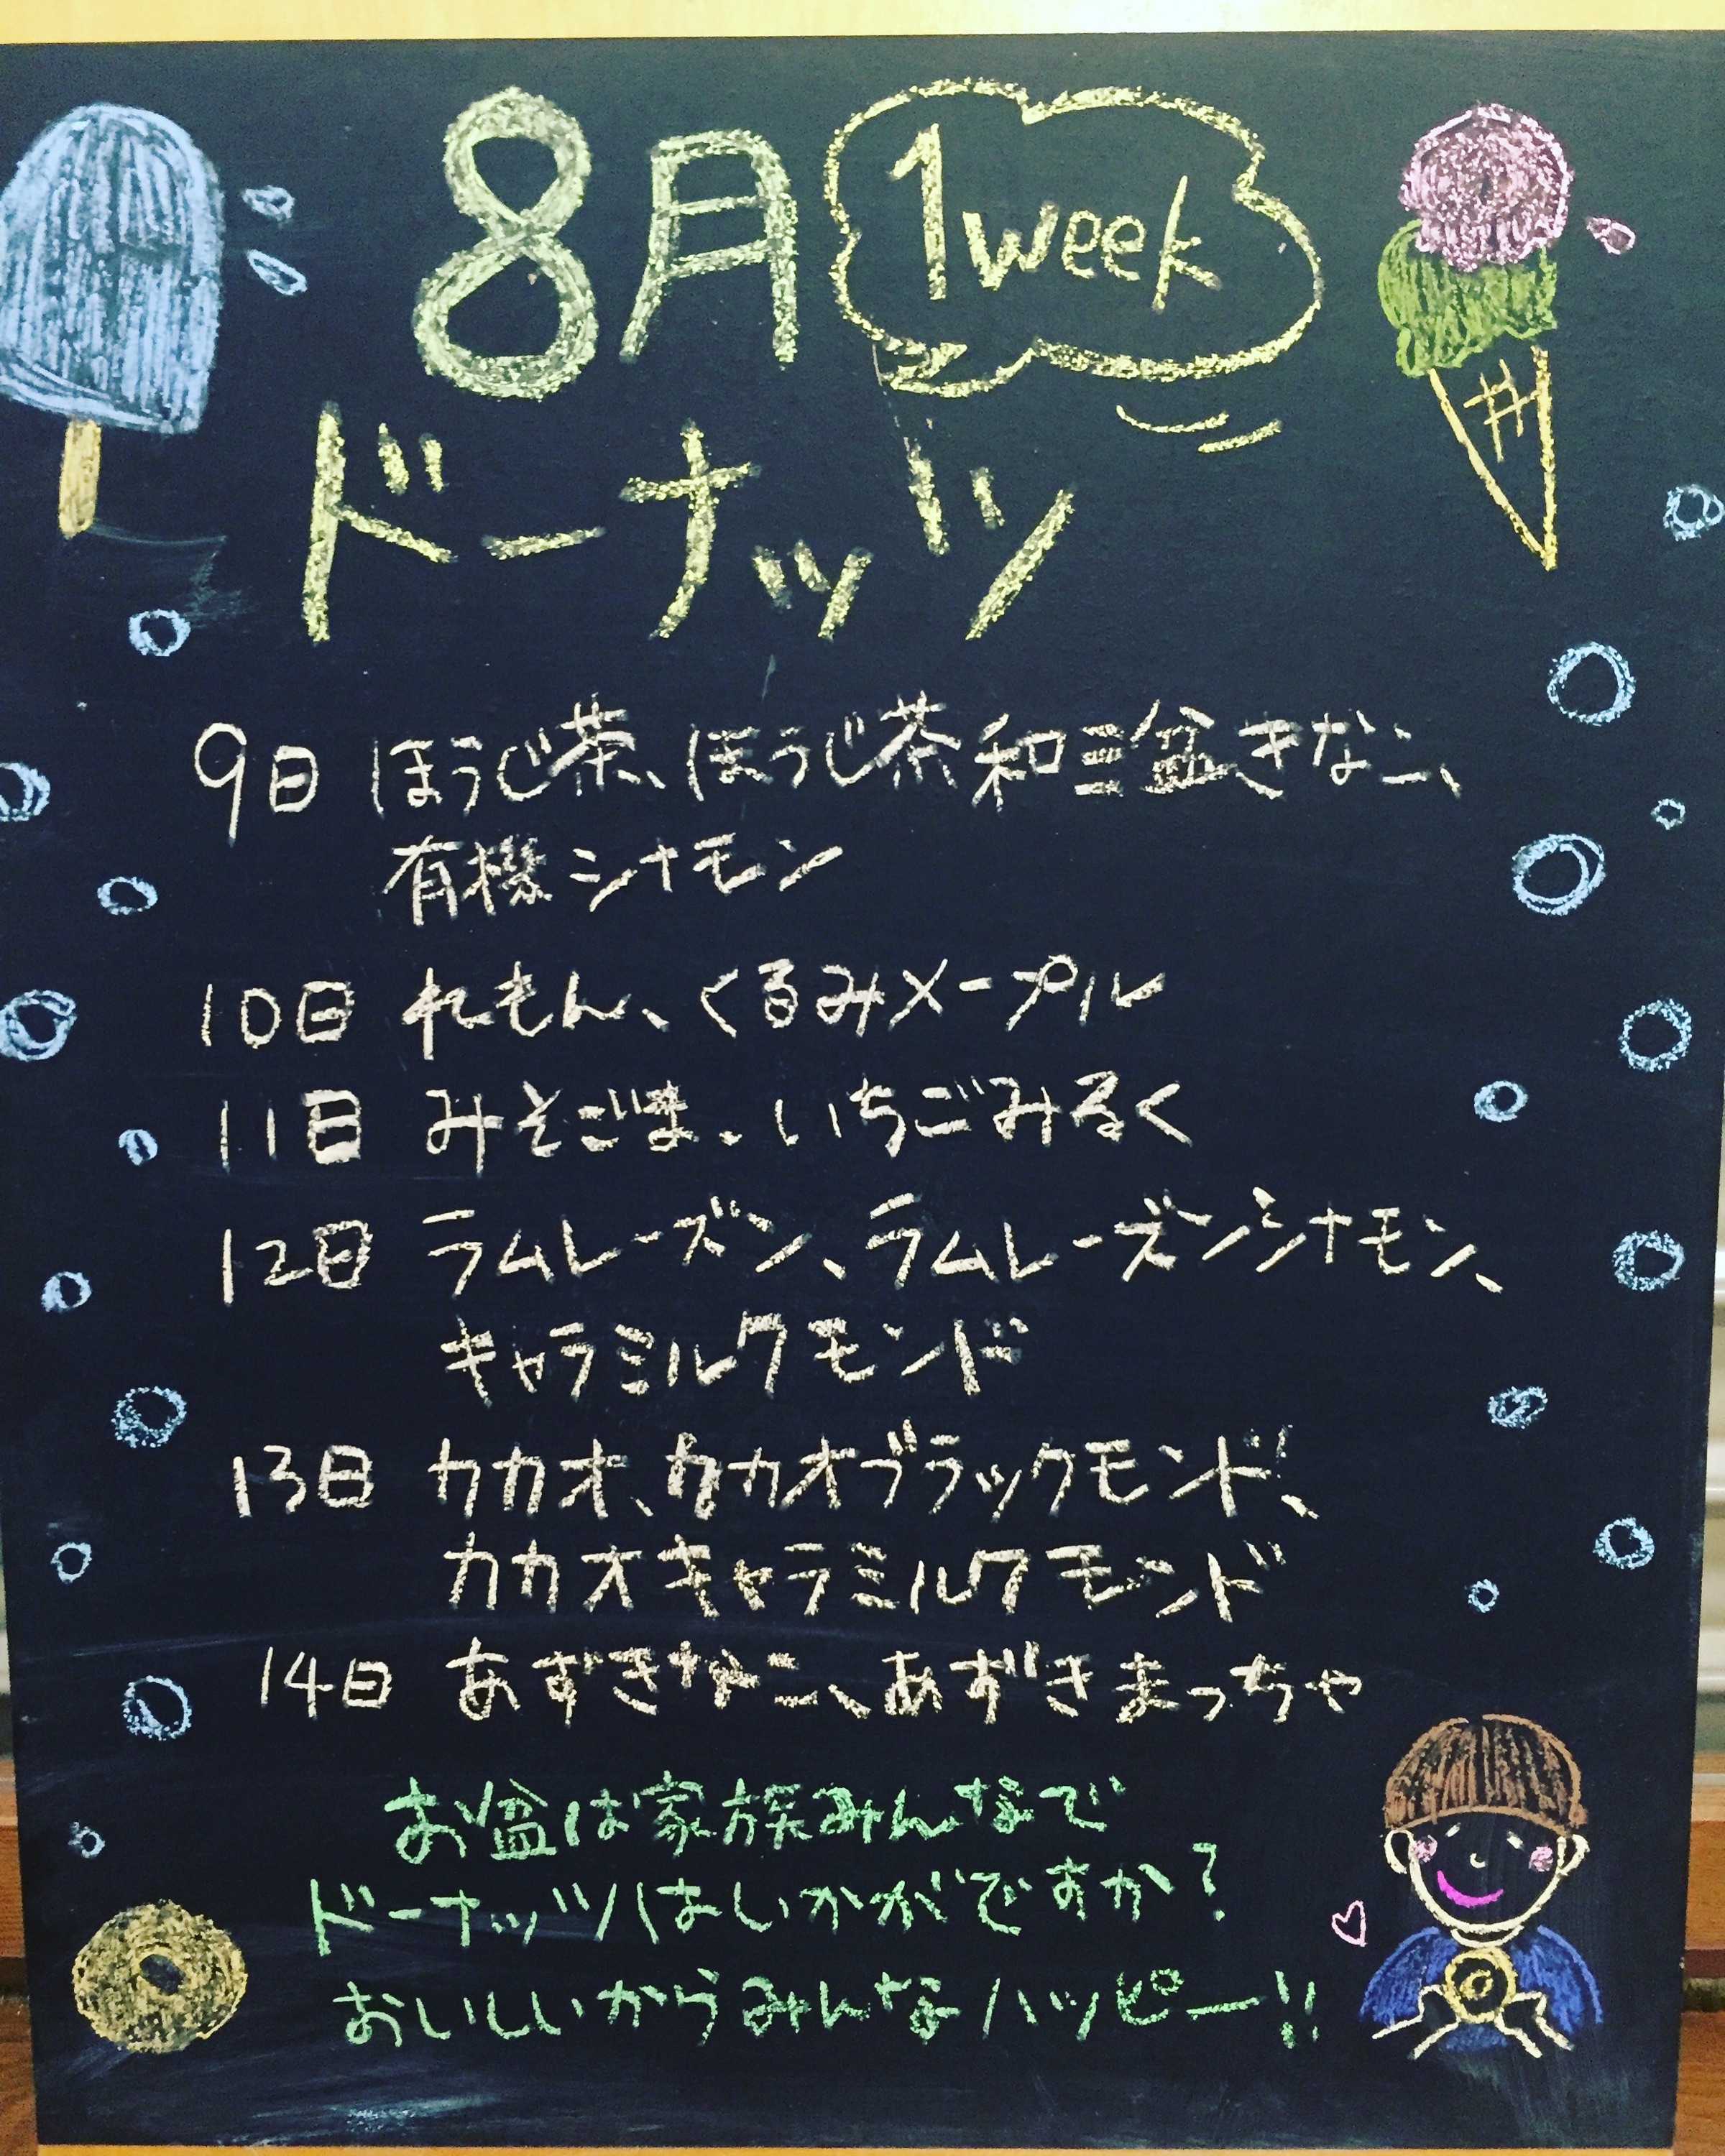 8月 1week
ドーナッツ
9日 ほうじ茶、ほうじ茶和三盆きなこ、
有機シナモン
10日 れもん、くるみメープル
11日 みそごま、いちごみるく
12日 ラムレーズン、ラムレーズンシナモン、
キャラミルクモンド
13日 カカオ、カカオブラックモンド、
カカオキャラミルクモンド
14日 あずきなこ、あずきまっちゃ
お盆は家族みんなで
ドーナッツはいかがですか?
おいしいからみんなハッピー!!